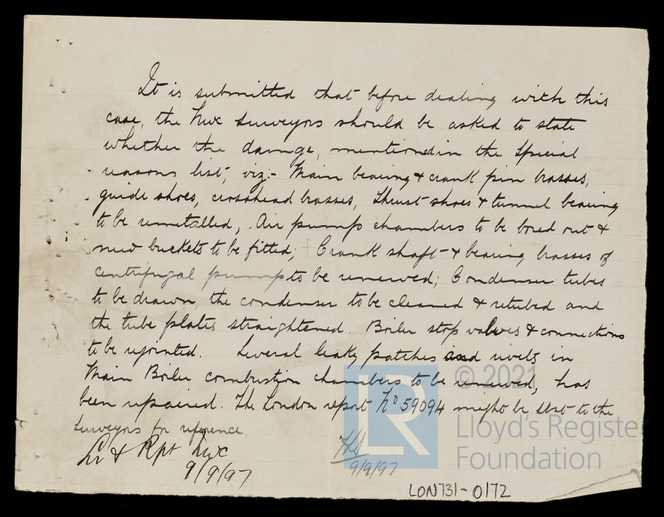 It is submitted that before dealing with this
case, the Nwc Surveyors should be asked to state
whether the damage, mentioned in the Special
reasons list, viz:- Main bearing & crank pin brasses,
guide shoes, crosshead brasses, Thrust shoes & tunnel bearing
to be remetalled, Air pumps chambers to be bored out &
new buckets to be fitted, Crank shaft & bearing brasses of
centrifugal pump to be renewed; Condenser tubes
to be drawn, the condenser to be cleaned & retubed and
the tube plates straightened. Boiler stop valves & connections
to be rejointed. Several leaky patches and rivets in
Main Boiler combustion chambers to be renewed, has
been repaired. The London report No 59094 might be sent to the
Surveyors for reference.
Lr & Rpt Nwc
9/9/97
9/9/97
LON731-0172
© 2021
LR
Lloyd's Register
Foundation